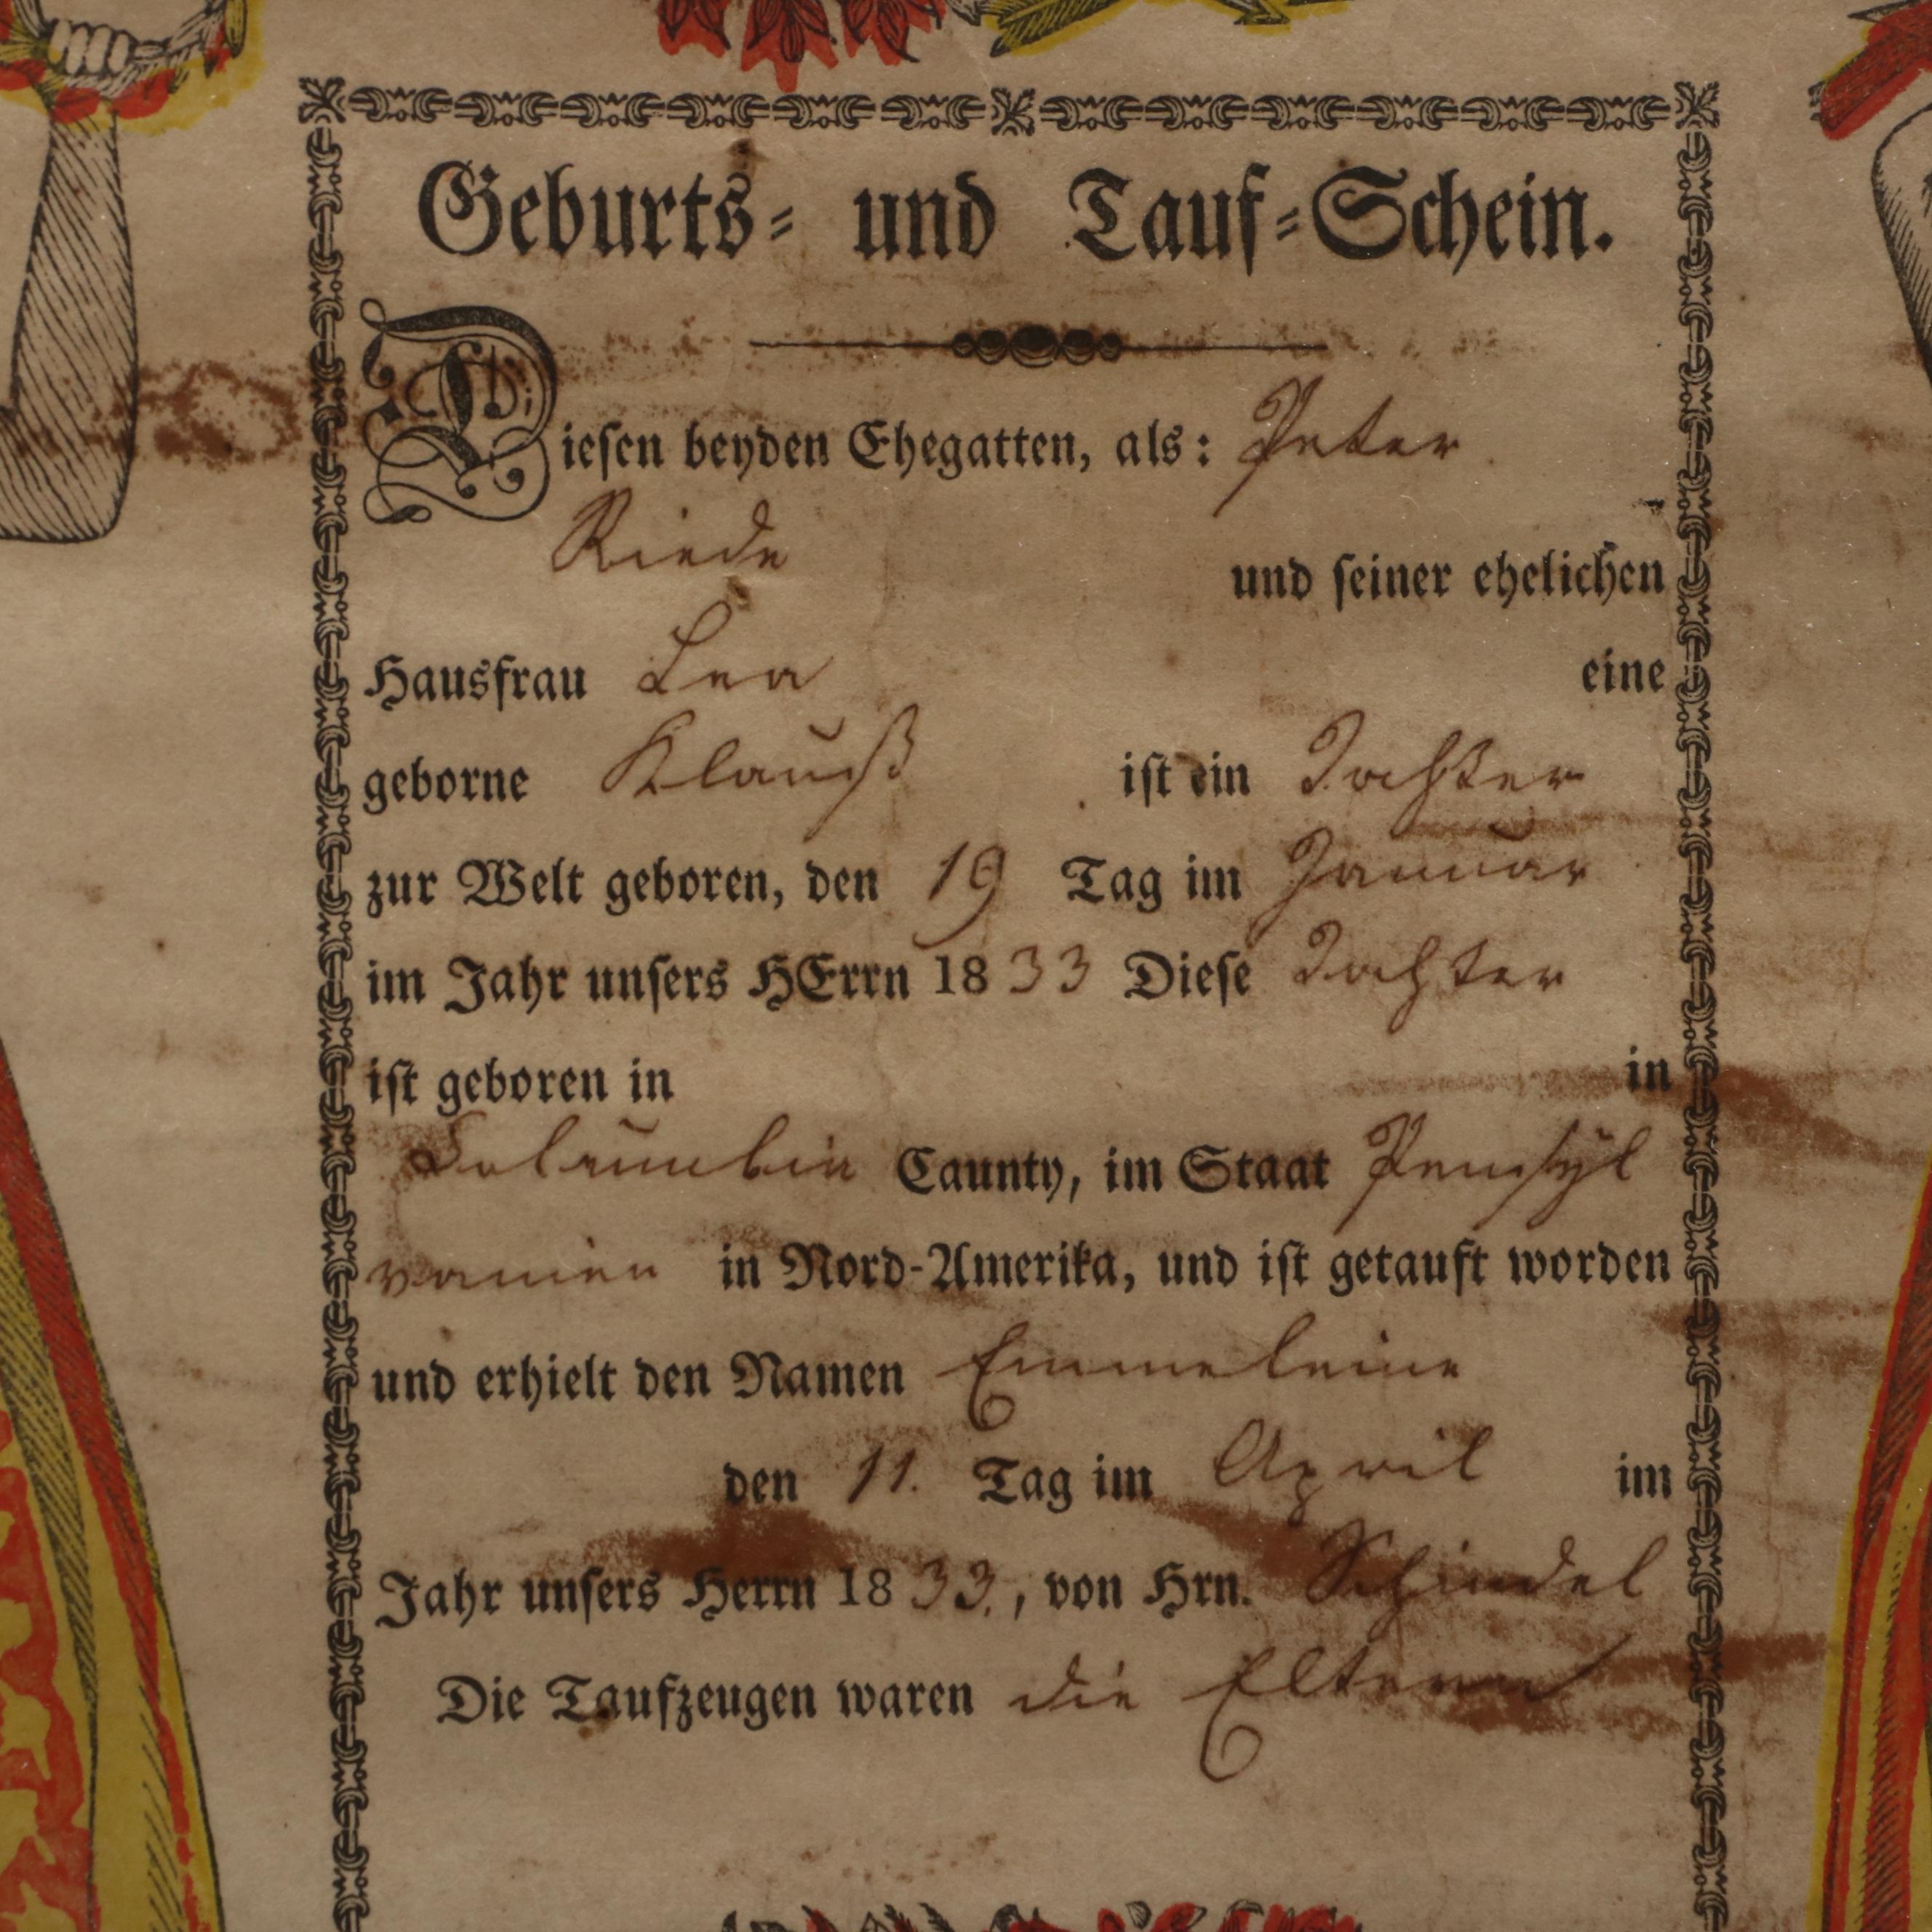 Geburts- und Tauf-Schein.
Diesen beyden Ehegatten, als: Peter
Riede
und seiner ehelichen
Hausfrau Lea eine
geborne Klauß ist ein Tochter
zur Welt geboren, den 19 Tag im Januar
im Jahr unsers HErrn 1833 Diese Tochter
ist geboren in in
Columbia Caunty, im Staat Pensyl
vanien in Nord-Amerika, und ist getauft worden
und erhielt den Namen Emmeleine
den 11. Tag im April im
Jahr unsers Herrn 1833., von Hrn. Schindel
Die Taufzeugen waren die Eltern